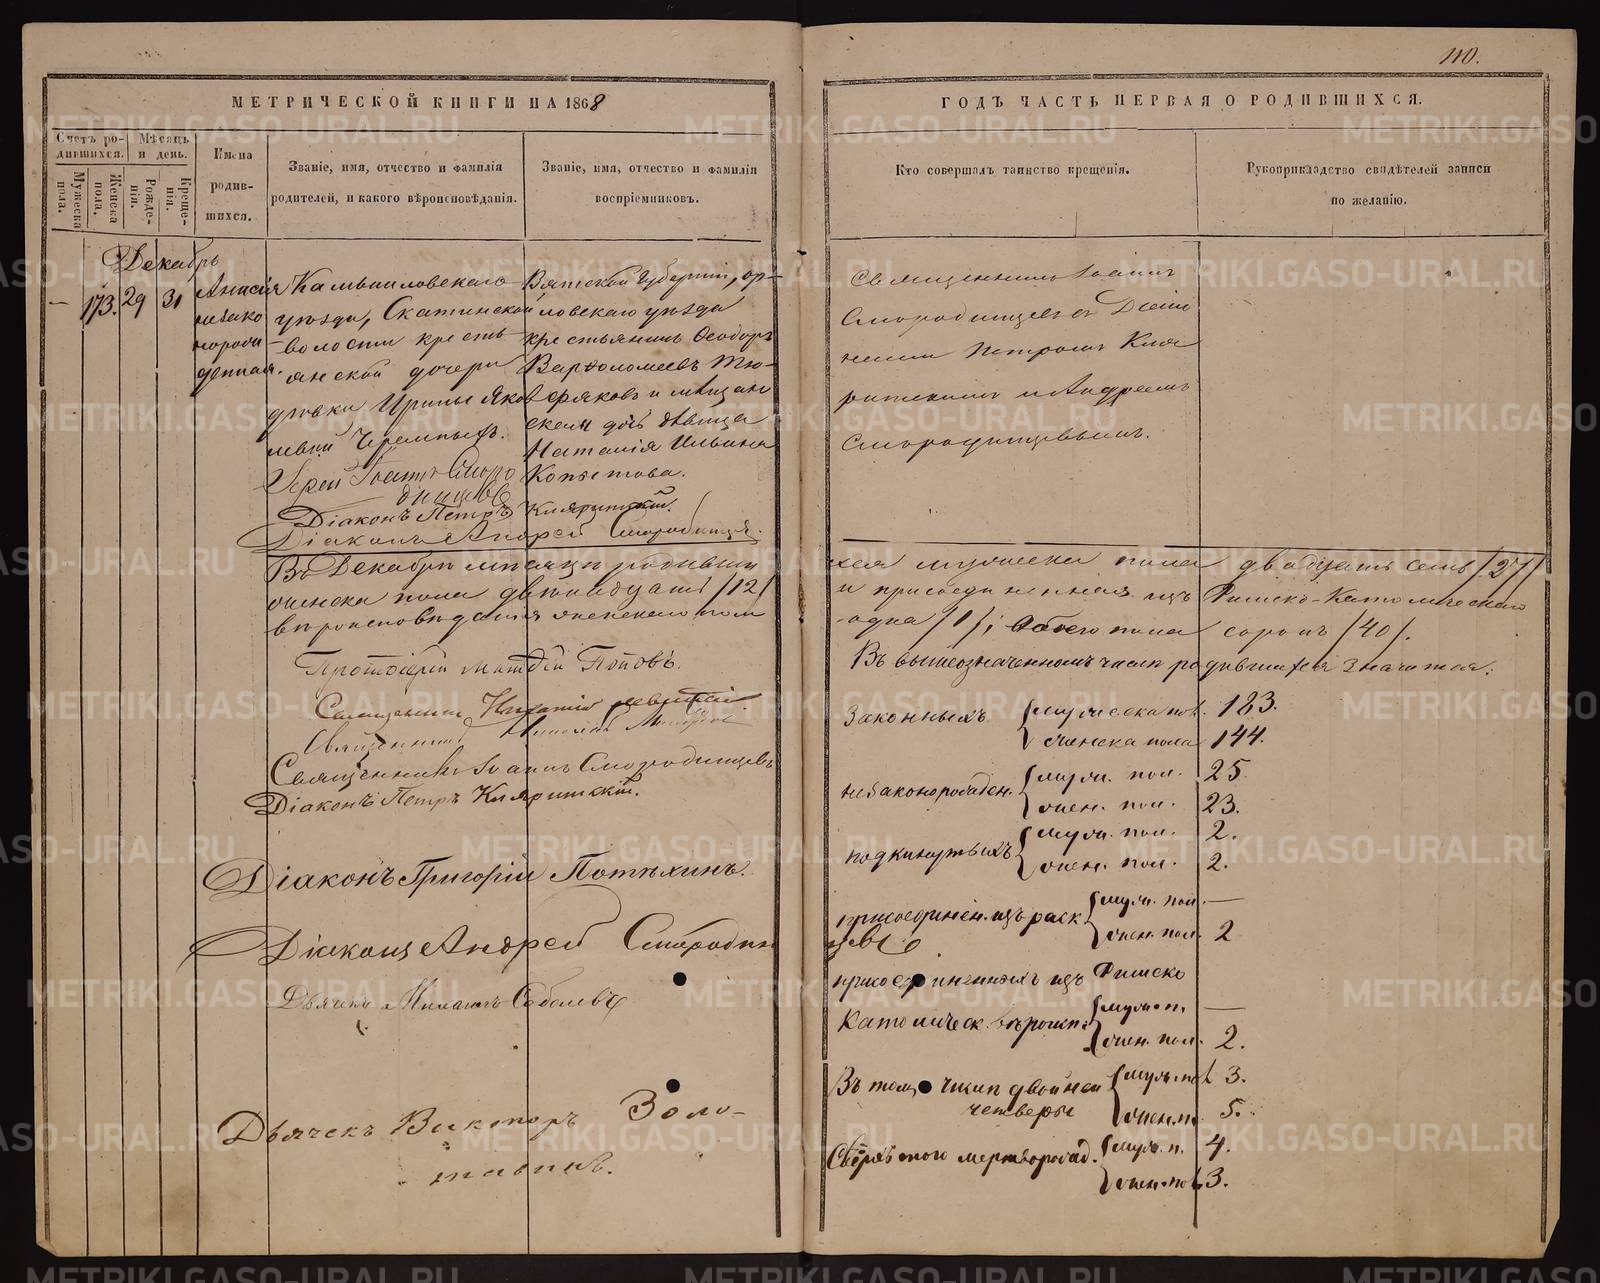 110.
МЕТРИЧЕСКОЙ КНИГИ НА 1868
ГОДЪ ЧАСТЬ ПЕРВАЯ О РОДИВШИХСЯ.
Счетъ ро-
дившихся.
Мѣсяцъ
и день.
Мужеска
пола.
Женска
пола.
Рожде-
нія.
Креще-
нія.
Имена
родив-
шихся.
Званіе, имя, отчество и фамилія
родителей, и какого вѣроисповѣданія.
Званіе, имя, отчество и фамилія
воспріемниковъ.
Кто совершалъ таинство крещенія.
Рукоприкладство свидѣтелей записи
по желанію.
Декабрь
— 173. 29 31
Анисія
незако
норож
денная.
Камышловскаго
уѣзда, Скатинской
волости кресть
янской дочери
дѣвки Ирины Яков
левой Черемныхъ.
Іерей Іоаннъ Сморо
динцевъ
Вятской Губерніи, Ор-
ловскаго уѣзда
крестьянинъ Ѳеодоръ
Варѳоломеевъ Тю-
фяковъ и мѣщан
ская дочь дѣвица
Наталія Ильина
Копытова.
Діаконъ Петръ Кляритскій.
Діаконъ Андрей Смородинце.
Священникъ Іоаннъ
Смородинцевъ съ Діако
нами Петромъ Кля
ритскимъ и Андреемъ
Смородинцевымъ.
Въ Декабрѣ мѣсяцѣ родивши
хся мужеска пола двадцать семь /27/
женска пола двѣнадцать /12/
и присоединенная изъ Римско-Католическаго
вѣроисповѣданія женскаго пола
одна /1/; Обоего пола сорокъ /40/.
Протоіерей Матѳій Поповъ.
Священникъ
Священникъ
Священникъ Іоаннъ Смородинцевъ
Діаконъ Петръ Кляритскій.
Діаконъ Григорій Потѣхинъ.
Діаконъ Андрей Смородин
Дьячекъ Соболевъ
Дьячекъ Викторъ Золо-
тавинъ.
Въ вышеозначенномъ числѣ родившихся значится:
Законныхъ { мужеска пол. 183.
женска пола 144.
незаконорожден. { муж. пол. 25.
жен. пол. 23.
подкинутыхъ { муж. пол. 2.
жен. пол. 2.
присоединен. изъ раск { муж. пол. —
жен. пол. 2
присоединенныхъ изъ Римско
Католическ. вѣроисп. { муж. п. —
жен. пол. 2.
Въ томъ числѣ двойней { муж. пол 3.
четверы
жен. п. 5.
Сверхъ того мертворожд. { муж. п. 4.
жен. пол 3.
METRIKI.GASO-URAL.RU